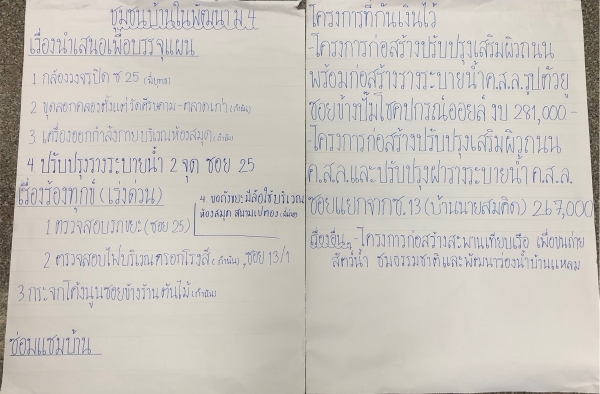 ชุมชนบ้านในพัฒนา ม.4
เรื่องนำเสนอเพื่อบรรจุแผน
1 กล้องวงจรปิด ซ.25
2 ขุดลอกคลองตั้งแต่ - ตลาดเก่า
3 เครื่องออกกำลังกาย บริเวณห้องสมุด
4 ปรับปรุงรางระบายน้ำ 2 จุด ซอย 25
เรื่องร้องทุกข์ (เร่งด่วน)
4 ขอถังขยะมีล้อใช้บริเวณ
ห้องสมุด สนามเปตอง
1 ตรวจสอบรถขยะ (ซอย 25)
2 ตรวจสอบไฟบริเวณตรอกโรงสี , ซอย 13/1
3 กระจกโค้งนูนซอยข้างร้านต้นไม้
ซ่อมแซมบ้าน
โครงการที่กันเงินไว้
-โครงการก่อสร้างปรับปรุงเสริมผิวถนน
พร้อมก่อสร้างรางระบายน้ำ ค.ส.ล.รูปตัวยู
ซอยข้างปั๊มโชคปกรณ์ออยล์ งบ 281,000-
-โครงการก่อสร้างปรับปรุงเสริมผิวถนน
ค.ส.ล.และปรับปรุงฝารางระบายน้ำ ค.ส.ล.
ซอยแยกจากซ.13 (บ้านนายสมคิด) 247,000
เรื่องอื่นๆ - โครงการก่อสร้างสะพานเทียบเรือ เพื่อขนถ่าย
สัตว์น้ำ ชมธรรมชาติและพัฒนาร่องน้ำบ้านแหลม